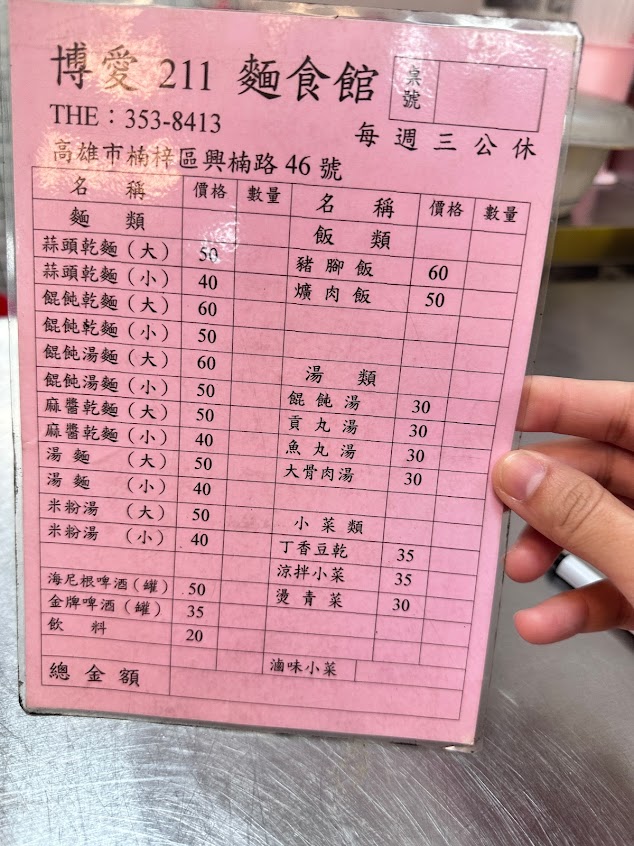 博愛 211 麵食館
桌號
THE：353-8413
每週三公休
高雄市楠梓區興楠路 46 號
名稱 價格 數量
麵類
蒜頭乾麵（大） 50
蒜頭乾麵（小） 40
餛飩乾麵（大） 60
餛飩乾麵（小） 50
餛飩湯麵（大） 60
餛飩湯麵（小） 50
麻醬乾麵（大） 50
麻醬乾麵（小） 40
湯麵（大） 50
湯麵（小） 40
米粉湯（大） 50
米粉湯（小） 40
海尼根啤酒（罐） 50
金牌啤酒（罐） 35
飲料 20
名稱 價格 數量
飯類
豬腳飯 60
爌肉飯 50
湯類
餛飩湯 30
貢丸湯 30
魚丸湯 30
大骨肉湯 30
小菜類
丁香豆乾 35
涼拌小菜 35
燙青菜 30
滷味小菜
總金額